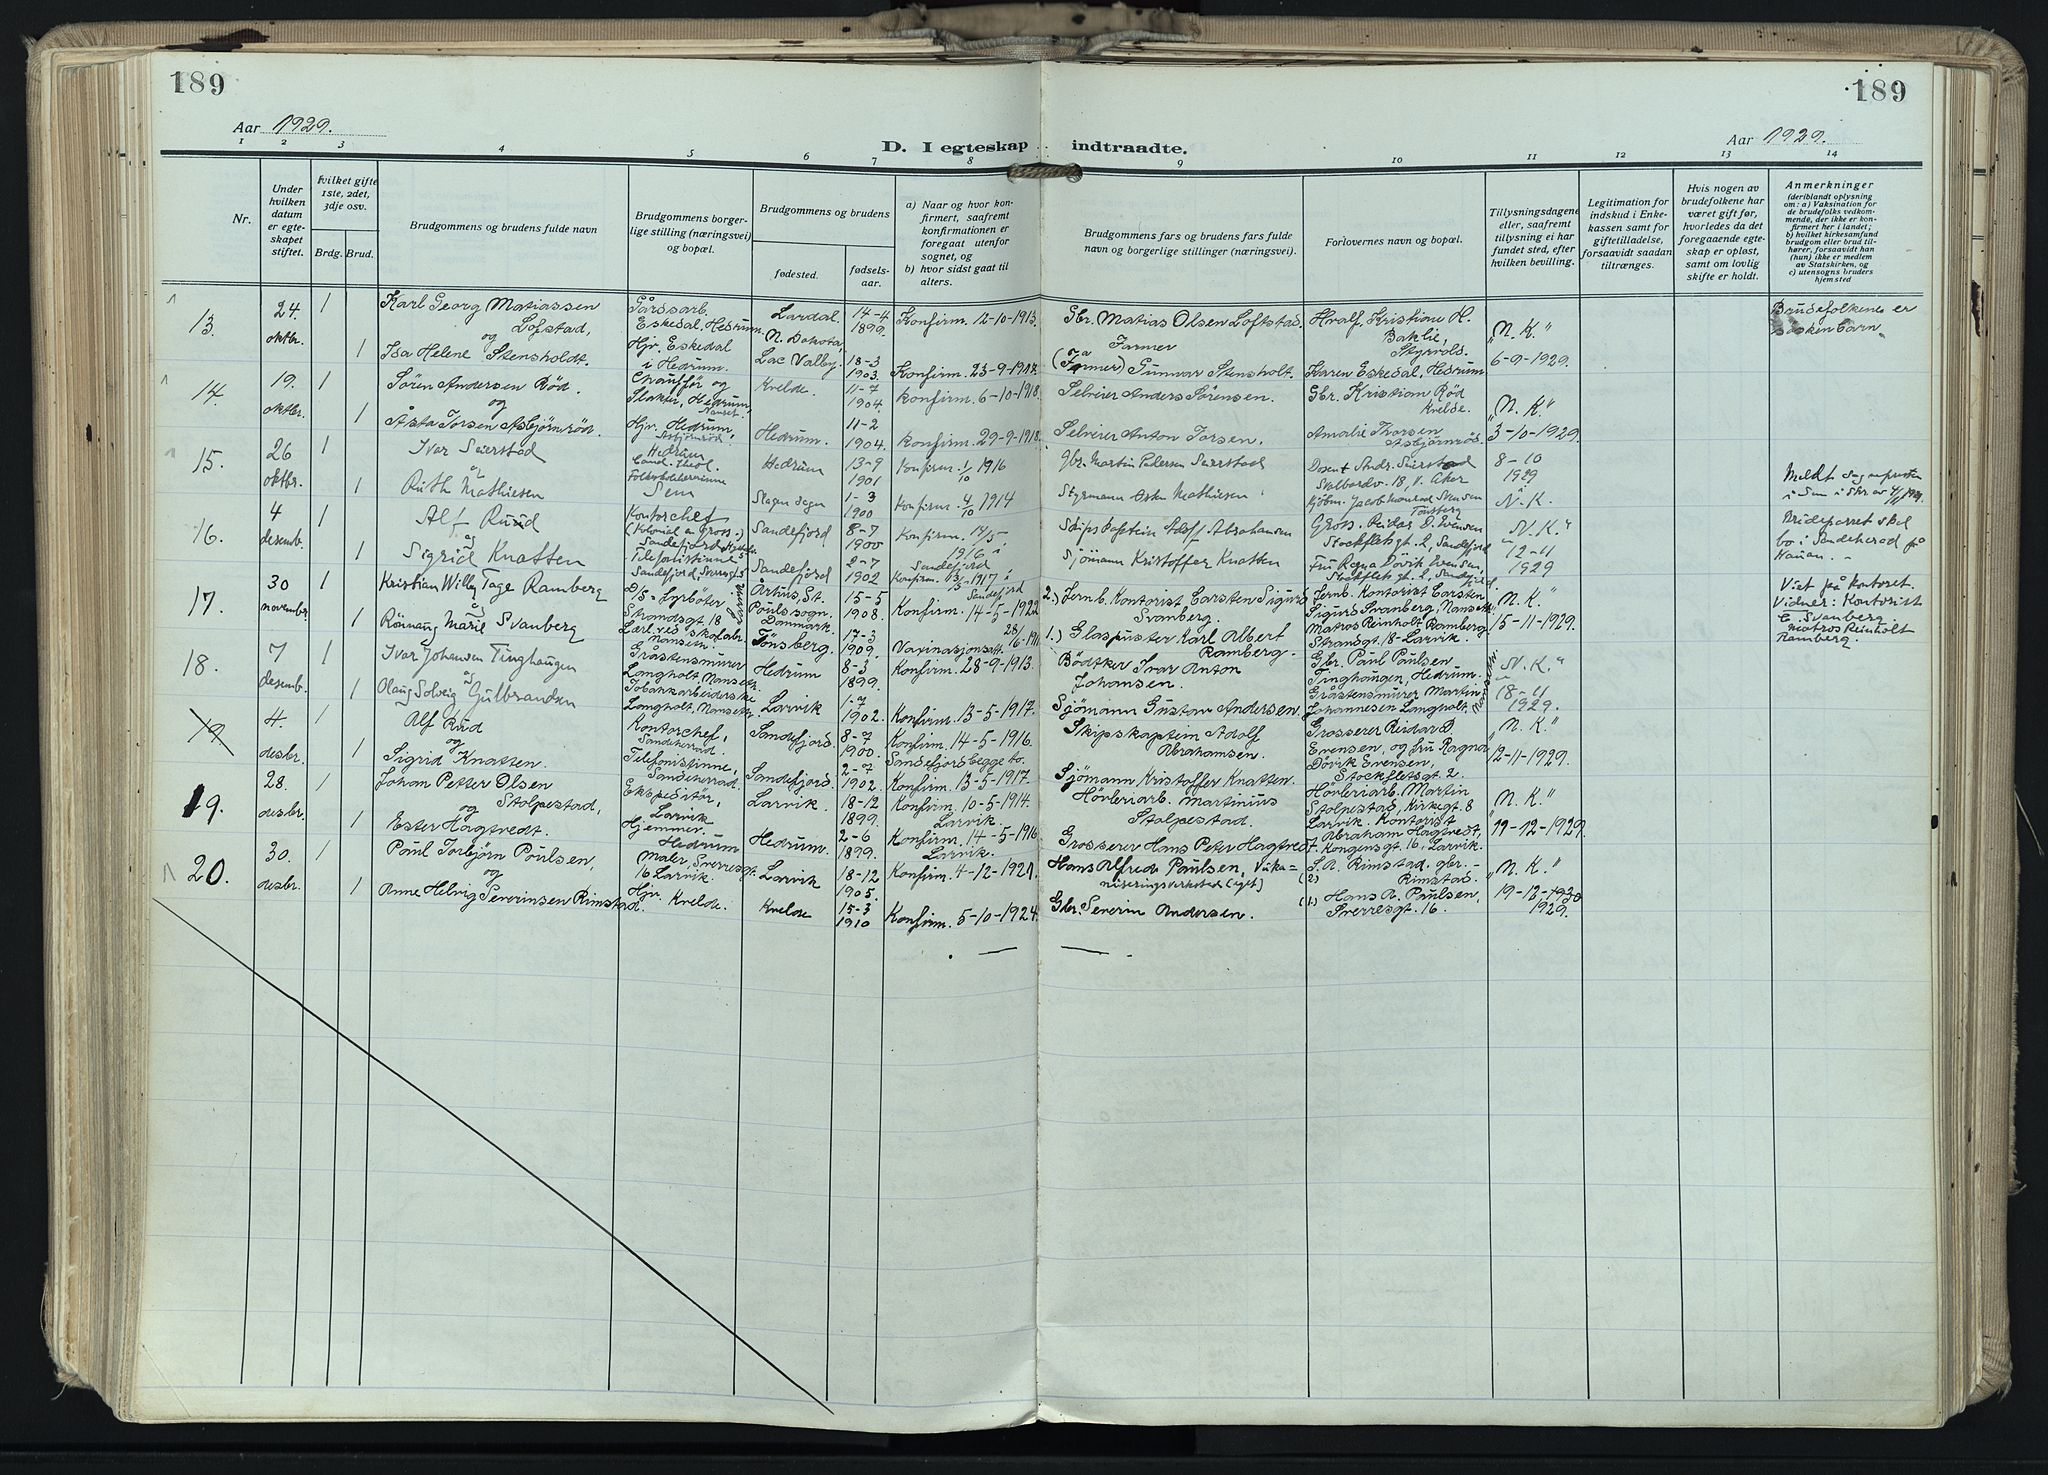 189
189
Aar 1929.
D. I egteskap indtraadte.
Aar 1929.
1 2 3 4 5 6 7 8 9 10 11 12 13 14
Nr.
Under hvilken datum er egteskapet stiftet.
hvilket gifte 1ste, 2det, 3dje osv.
Brdg. Brud.
Brudgommens og brudens fulde navn
Brudgommens borgerlige stilling (næringsvei) og bopæl.
Brudgommens og brudens
fødested.
fødselsaar.
a) Naar og hvor konfirmert, saafremt konfirmationen er foregaat utenfor sognet, og
b) hvor sidst gaat til alters.
Brudgommens fars og brudens fars fulde navn og borgerlige stillinger (næringsvei).
Forlovernes navn og bopæl.
Tillysningsdagene eller, saafremt tillysning ei har fundet sted, efter hvilken bevilling.
Legitimation for indskud i Enkekassen samt for giftetilladelse, forsaavidt saadan tiltrænges.
Hvis nogen av brudefolkene har været gift før, hvorledes da det foregaaende egteskap er opløst, samt om lovlig skifte er holdt.
Anmerkninger
(deriblandt oplysning om: a) Vaksination for de brudefolks vedkommende, der ikke er konfirmert her i landet; b) hvilket kirkesamfund brudgom eller brud tilhører, forsaavidt han (hun) ikke er medlem av Statskirken, og c) utensogns bruders hjemsted
13. 24. oktbr. 1
Karl Georg Matiassen Lofstad,
Gårdsarb. Eskedal, Hedrum.
Lardal. 14-4 1899.
Konfirm. 12-10-1913.
Gbr. Matias Olsen Loftstad.
Hvalf. Kristian H. Baklie, Styrvold.
"N. K."
Brudefolkene er søskenbarn
og
1 Ida Helene Stensholdt.
Hjv. Eskedal i Hedrum.
N. Dakota Lac Valley. 18-3 1903.
Konfirm. 23-9-1917.
Farmer Gunnar Stensholt.
Karen Eskedal, Hedrum
6-9-1929.
14. 19. oktbr. 1
Sören Andersen Röd.
Chauffør og Slakter, Hedrum, Nanset.
Kvelde. 11-7 1904.
Konfirm. 6-10-1918.
Selveier Anders Sørensen.
Gbr. Kristian Röd Kvelde.
"N. K."
og
1 Åsta Torsen Asbjörnröd.
Hjv. Hedrum, Asbjörnröd
Hedrum. 11-2 1904.
Konfirm. 29-9-1918.
Selveier Anton Torsen.
Amalie Thorsen Asbjörnröd.
3-10-1929.
15. 26 oktbr. 1
Ivar Seierstad
Hedrum Cand. theol.
Hedrum 13-9 1901
Konfirm. 1/10 1916
Gbr. Martin Pedersen Seierstad
Dosent Andr. Seierstad Svalbardv. 18, V. Aker
8-10 1929
og
1 Ruth Mathiesen
Sem
Slagen sogn 1-3 1900
Konfirm. 4/10 1914
Styrmann Oskar Mathiesen
Kjöbm. Jacob Konrad Svensen Tönsberg
N. K.
16. 4 desemb. 1
Alf Ruud
Kontorchef (Kolonial en Gros.) Sandefjord
Sandefjord 8-7 1900
Konfirm. 14/5 1916 i Sandefjord
Skipskaptein Adolf Abrahamsen
Gross. Reidar D. Evensen Stockfletsgt. 2, Sandefjord
"N. K."
Brudeparret skal bo i Sandeherad på Hauan.
og
1 Sigrid Knatten
Telefonistinne Sandefjord
Sandefjord 2-7 1902
Konfirm. 13/5-1917 i Sandefjord
Sjömann Kristoffer Knatten
Fru Ragna Dövik Evensen, Stockfletsgt. 2, Sandefjord
12-11 1929
17. 30 november 1
Kristian Willy Tage Ramberg
D/S Fyrböter Strandsgt 18 Larvik
Århus, St. Pouls sogn. Danmark. 15-5 1908.
Konfirm. 14-5-1922
2.) Jernb. Kontorist Carsten Sigurd Svanberg.
Jernb. Kontorist Carsten Sigurd Svanberg, Nanset
"N. K."
Viet på kontoret. Vidner: Kontorist C. Svanberg Matros Reinholt Ramberg.
og
1 Rönnaug Marie Svanberg
Lærl. ved skofabr. Nanset.
Tönsberg. 17-3 1909.
Vaxinasjonsatt.
1.) Glaspuster Karl Albert Ramberg.
Matros Reinholt Ramberg. Strandsgt. 18-Larvik.
15-11-1929.
18. 7 desemb. 1
Ivar Johansen Tinghaugen
Gråstensmurer Langholt, Nanset.
Hedrum 8-3 1899.
Konfirm. 28-9-1913.
Bödtker Ivar Anton Johansen.
Gbr. Paul Paulsen Tinghaugen, Hedrum.
"N. K."
og
1 Olaug Solveig Gulbrandsen
Tobakkarbeiderske Langholt. Nanset.
Larvik 1902.
Konfirm. 13-5-1917.
Sjömann Gustav Andersen.
Gråstensmurer Martin Johannesen Langholt.
18-11 1929.
19 4. desbr. 1
Alf Rud
Kontorchef, Sandeherrad.
Sandefjord. 8-7 1900.
Konfirm. 14-5-1916. Sandefjord begge to.
Skipskaptein Adolf Abrahamsen.
Grosserer Reidar D. Evensen, og fru Ragna Dövik Evensen, Stockfletsgt. 2.
"N. K."
og
1 Sigrid Knatten.
Telefonistinne, Sandeherrad.
Sandefjord. 2-7 1902.
Konfirm. 13-5-1917.
Sjömann Kristoffer Knatten.
12-11-1929.
19. 28. desbr. 1
Johan Petter Olsen Stolpestad,
Ekspeditör, Larvik
Larvik. 18-12 1899.
Konfirm. 10-5-1914. Larvik.
Hövleriarb. Martinius Stolpestad.
Hövleriarb. Martin Stolpestad, Kirkegt. 8 Larvik.
"N. K."
og
1 Ester Hagtvedt.
Hjemmev. Hedrum
Hedrum. 2-6 1899.
Konfirm. 14-5-1916 Larvik.
Grosserer Hans Peter Hagtvedt.
Kontorist Abraham Hagtvedt, Kongensgt. 16, Larvik.
19-12-1929.
20. 30. desbr. 1
Paul Torbjörn Paulsen,
Maler, Sverresgt. 16 Larvik.
Larvik 18-12 1905.
Konfirm. 4-12-1921.
Hans Alfred Paulsen, Vulkaniseringsverksted (eget)
(2) S. A. Rimstad, gbr. - Rimstad.
"N. K."
og
1 Anne Helvig Severinsen Rimstad.
Hjv. Kvelde.
Kvelde 15-3 1910
Konfirm. 5-10-1924.
Gbr. Severin Andersen.
(1) Hans A. Paulsen, Sverresgt. 16.
19-12-1930 1929.